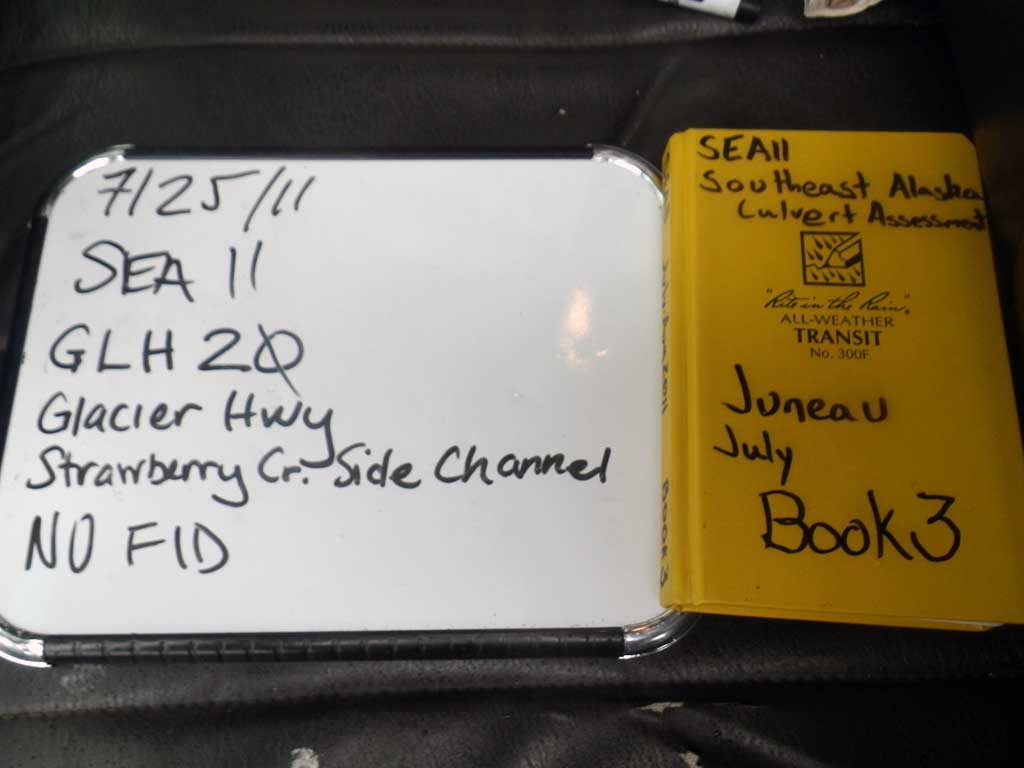 7/25/11
SEA 11
GLH 20
Glacier Hwy
Strawberry Cr. Side Channel
NO FID
SEA11
Southeast Alaska
Culvert Assessment
"Rite in the Rain"
ALL-WEATHER
TRANSIT
No. 300F
Juneau
July
Book 3
BOOK 3